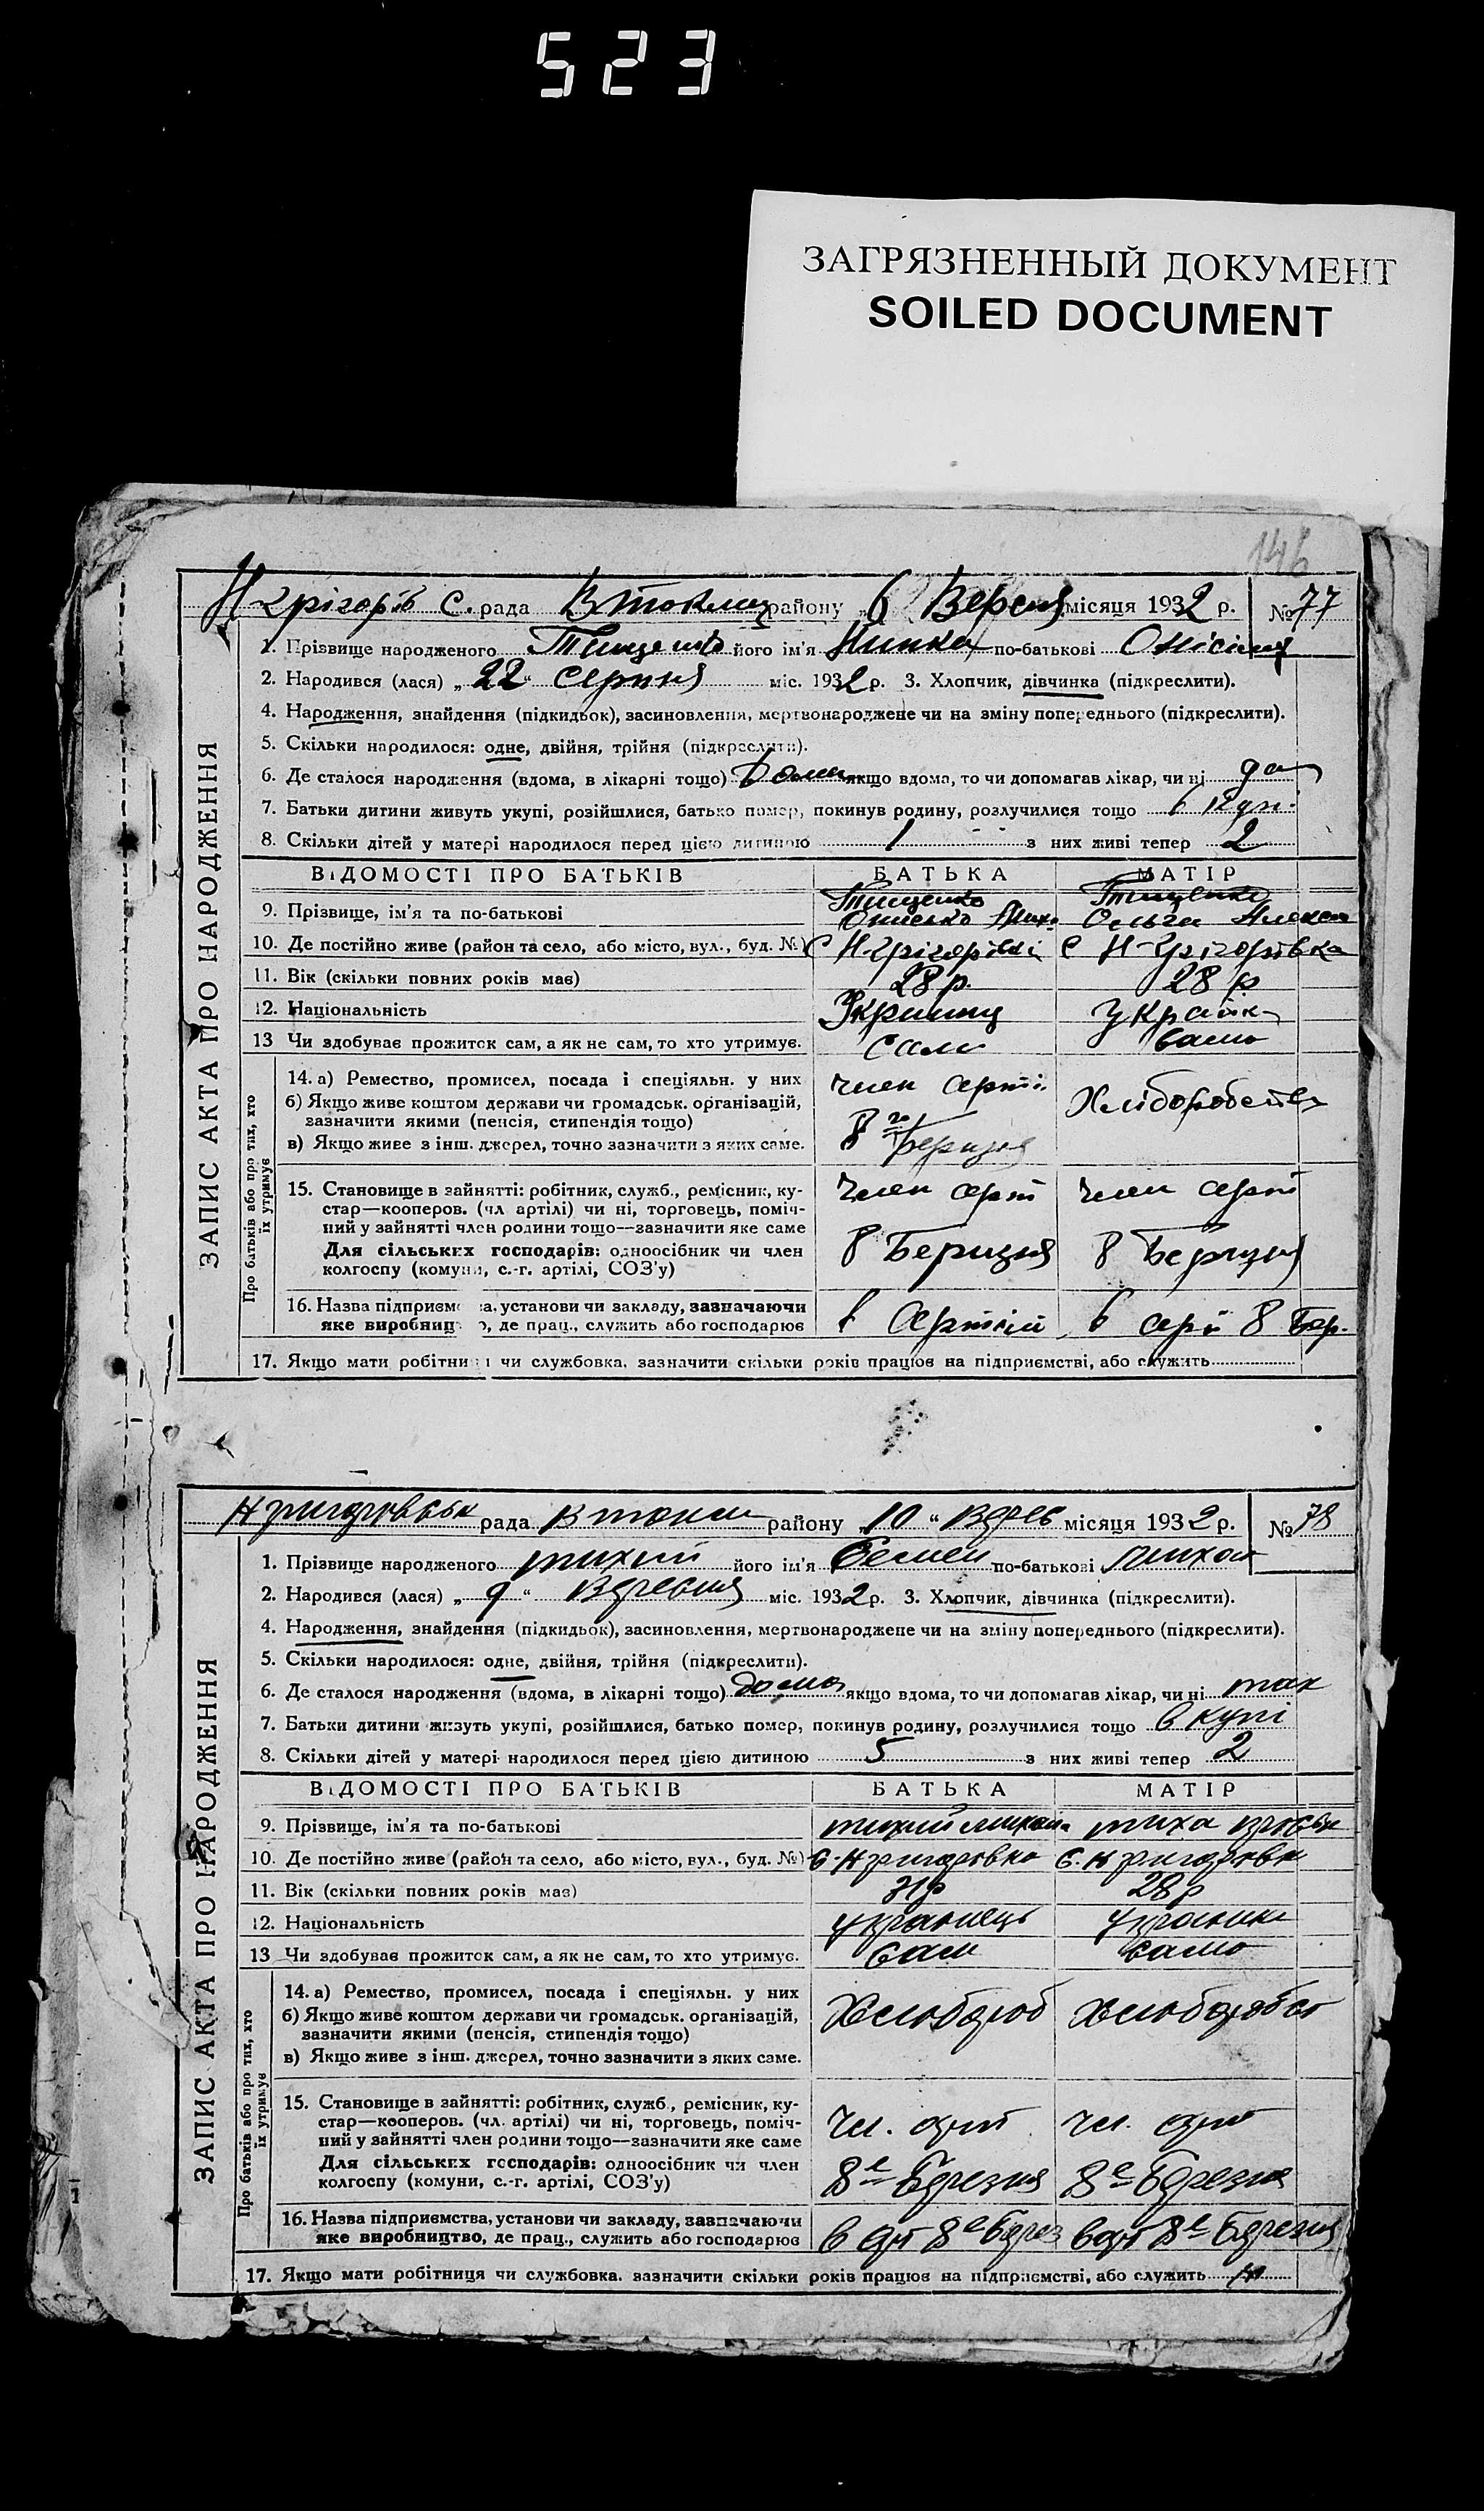 523
ЗАГРЯЗНЕННЫЙ ДОКУМЕНТ
SOILED DOCUMENT
146
ЗАПИС АКТА ПРО НАРОДЖЕННЯ
Н Грігорів с. рада району „6 Версня місяця 1932 р. № 77
1. Прізвище народженого Тищенко його ім'я Нинка по-батькові
2. Народився (лася) „22“ Серпня міс. 1932 р. 3. Хлопчик, дівчинка (підкреслити).
4. Народження, знайдення (підкидьок), засиновлення, мертвонароджене чи на зміну попереднього (підкреслити).
5. Скільки народилося: одне, двійня, трійня (підкреслити).
6. Де сталося народження (вдома, в лікарні тощо) якщо вдома, то чи допомагав лікар, чи ні да
7. Батьки дитини живуть укупі, розійшлися, батько помер, покинув родину, розлучилися тощо в купі
8. Скільки дітей у матері народилося перед цією дитиною 1 з них живі тепер 2
ВІДОМОСТІ ПРО БАТЬКІВ БАТЬКА МАТІР
9. Прізвище, ім'я та по-батькові Тищенко Тищенко Ольга
10. Де постійно живе (район та село, або місто, вул., буд. №) с Н-Грігорівкі с Н-Грігорівка
11. Вік (скільки повних років має) 28 р. 28 р
12. Національність Украинц Украінк
13 Чи здобуває прожиток сам, а як не сам, то хто утримує. сам само
Про батьків або про тих, хто їх утримує
14. а) Ремество, промисел, посада і спеціяльн. у них член серті
б) Якщо живе коштом держави чи громадськ. організацій, Хліборобств
зазначити якими (пенсія, стипендія тощо)
в) Якщо живе з інш. джерел, точно зазначити з яких саме. 8го Березня
15. Становище в зайнятті: робітник, служб., ремісник, ку- член серт член серт
стар—кооперов. (чл артілі) чи ні, торговець, поміч-
ний у зайнятті член родини тощо—зазначити яке саме
Для сільських господарів: одноосібник чи член 8 Березня 8 Березня
колгоспу (комуни, с.-г. артілі, СОЗ'у)
16. Назва підприємства, установи чи закладу, зазначаючи
яке виробництво, де прац., служить або господарює в Сертілі в серт 8 Бер.
17. Якщо мати робітниця чи службовка, зазначити скільки років працює на підприємстві, або служить
ЗАПИС АКТА ПРО НАРОДЖЕННЯ
Н Григоровськ рада району „10“ Верес місяця 1932 р. № 78
1. Прізвище народженого тихий його ім'я Семен по-батькові Михай
2. Народився (лася) „9“ Вересня міс. 1932 р. 3. Хлопчик, дівчинка (підкреслити).
4. Народження, знайдення (підкидьок), засиновлення, мертвонароджене чи на зміну попереднього (підкреслити).
5. Скільки народилося: одне, двійня, трійня (підкреслити).
6. Де сталося народження (вдома, в лікарні тощо) дома якщо вдома, то чи допомагав лікар, чи ні так
7. Батьки дитини живуть укупі, розійшлися, батько помер, покинув родину, розлучилися тощо в купі
8. Скільки дітей у матері народилося перед цією дитиною 5 з них живі тепер 2
ВІДОМОСТІ ПРО БАТЬКІВ БАТЬКА МАТІР
9. Прізвище, ім'я та по-батькові тихий михай тиха
10. Де постійно живе (район та село, або місто, вул., буд. №) с. Н Григоровка с. Н Григоровка
11. Вік (скільки повних років має) 31р 28р
12. Національність українець українка
13 Чи здобуває прожиток сам, а як не сам, то хто утримує. сам само
Про батьків або про тих, хто їх утримує
14. а) Ремество, промисел, посада і спеціяльн. у них
б) Якщо живе коштом держави чи громадськ. організацій, Хлебороб Хлеборобст
зазначити якими (пенсія, стипендія тощо)
в) Якщо живе з інш. джерел, точно зазначити з яких саме.
15. Становище в зайнятті: робітник, служб., ремісник, ку-
стар—кооперов. (чл. артілі) чи ні, торговець, поміч- чл. арт чл. арт
ний у зайнятті член родини тощо—зазначити яке саме
Для сільських господарів: одноосібник чи член 8е Березня 8е Березня
колгоспу (комуни, с.-г. артілі, СОЗ'у)
16. Назва підприємства, установи чи закладу, зазначаючи
яке виробництво, де прац., служить або господарює в арт 8е Берез в арт 8е Березня
17. Якщо мати робітниця чи службовка, зазначити скільки років працює на підприємстві, або служить